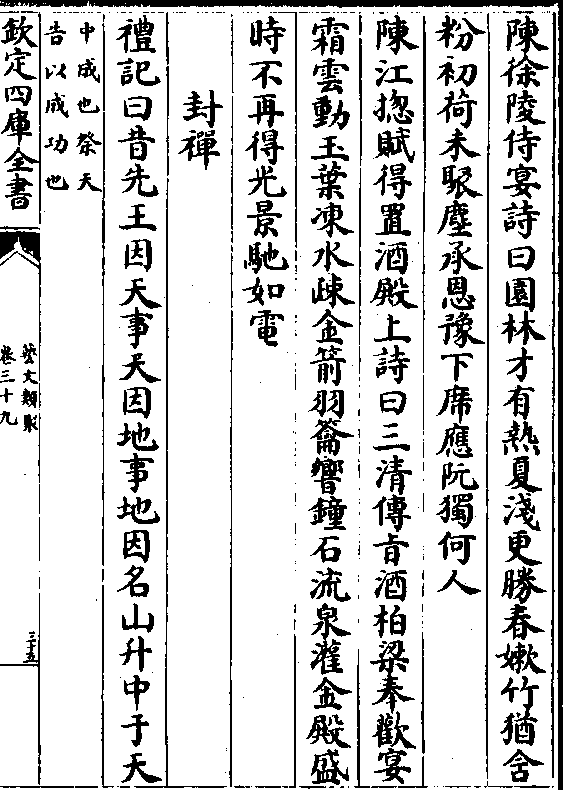 陳徐陵侍宴詩曰園林才有熱夏淺更勝春嫩竹猶含
粉初荷未聚塵承恩豫下席應阮獨何人
陳江揔賦得置酒殿上詩曰三清傳旨酒柏梁奉歡宴
霜雲動玉葉凍水疎金箭羽籥響鐘石流泉灌金殿盛
時不再得光景馳如電
封禪
禮記曰昔先王因天事天因地事地因名山升中于天
中成也祭天
告以成功也
欽定四庫全書
藝文類聚
卷三十九
三十五